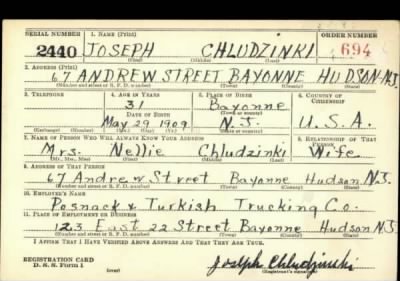 SERIAL NUMBER 1. NAME (Print) ORDER NUMBER
2440 JOSEPH CHLUDZINKI 694
(First) (Middle) (Last)
2. ADDRESS (Print)
67 ANDREW STREET BAYONNE HUDSON N.J.
(Number and street or R. F. D. number) (Town) (County) (State)
3. TELEPHONE 4. AGE IN YEARS 5. PLACE OF BIRTH 6. COUNTRY OF CITIZENSHIP
31 Bayonne
DATE OF BIRTH (Town or county)
May 29 1909 N.J. U.S.A.
(Exchange) (Number) (Mo.) (Day) (Yr.) (State or country)
7. NAME OF PERSON WHO WILL ALWAYS KNOW YOUR ADDRESS 8. RELATIONSHIP OF THAT PERSON
Mrs. Nellie Chludzinki Wife
(Mr., Mrs., Miss) (First) (Middle) (Last)
9. ADDRESS OF THAT PERSON
67 Andrew Street Bayonne Hudson N.J.
(Number and street or R. F. D. number) (Town) (County) (State)
10. EMPLOYER'S NAME
Posnack & Turkish Trucking Co.
11. PLACE OF EMPLOYMENT OR BUSINESS
123 East 22 Street Bayonne Hudson N.J.
(Number and street or R. F. D. number) (Town) (County) (State)
I AFFIRM THAT I HAVE VERIFIED ABOVE ANSWERS AND THAT THEY ARE TRUE.
REGISTRATION CARD
D. S. S. Form 1 (over) Joseph Chludzinski
(Registrant's signature)